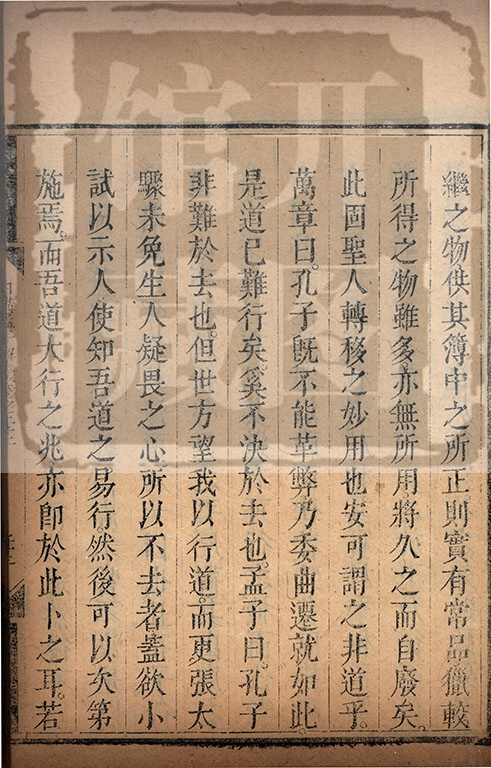 繼之物供其簿中之所正則實有常品獵較
所得之物雖多亦無所用將久之而自廢矣
此固聖人轉移之妙用也安可謂之非道乎
萬章曰孔子既不能革弊乃委曲遷就如此
是道已難行矣奚不決於去也孟子曰孔子
非難於去也但世方望我以行道而更張太
驟未免生人疑畏之心所以不去者蓋欲小
試以示人使知吾道之易行然後可以次第
施焉而吾道大行之兆亦卽於此卜之耳若